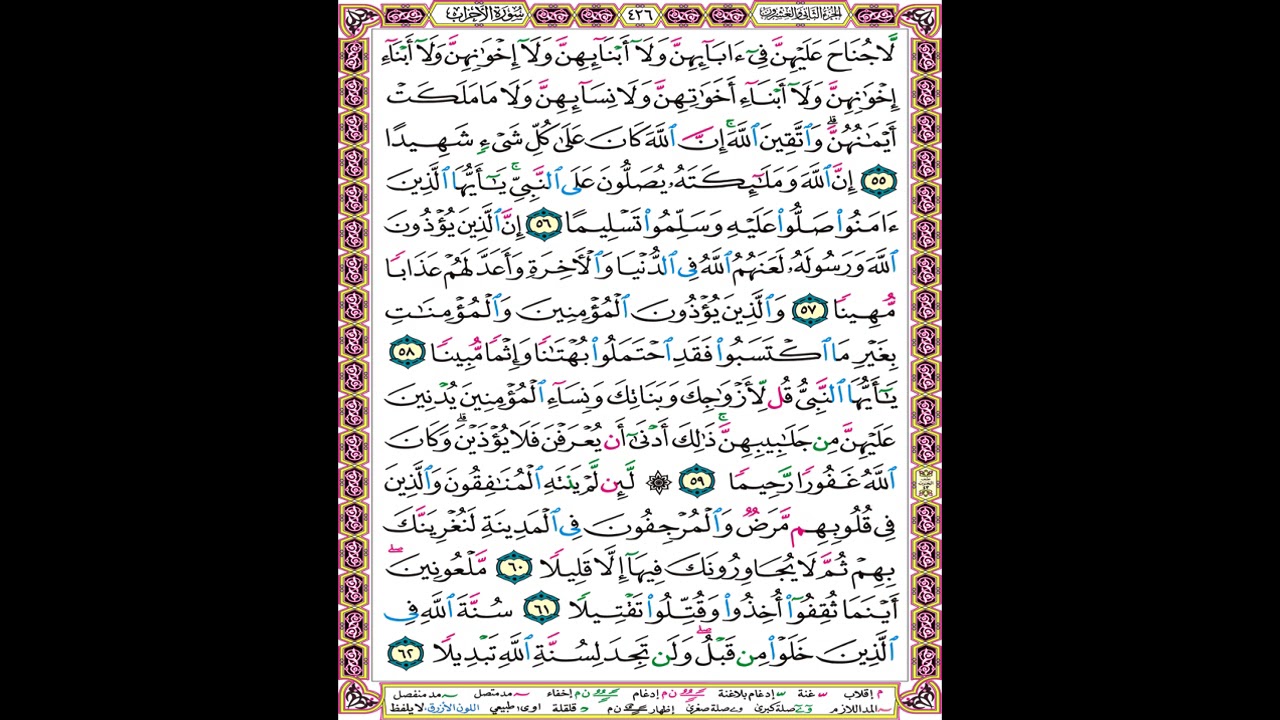 الجزء الثاني والعشرون ٤٢٦ سورة الأحزاب
لَّا جُنَاحَ عَلَيْهِنَّ فِىٓ ءَابَآئِهِنَّ وَلَآ أَبْنَآئِهِنَّ وَلَآ إِخْوَٰنِهِنَّ وَلَآ أَبْنَآءِ
إِخْوَٰنِهِنَّ وَلَآ أَبْنَآءِ أَخَوَٰتِهِنَّ وَلَا نِسَآئِهِنَّ وَلَا مَا مَلَكَتْ
أَيْمَٰنُهُنَّ ۗ وَٱتَّقِينَ ٱللَّهَ ۚ إِنَّ ٱللَّهَ كَانَ عَلَىٰ كُلِّ شَىْءٍ شَهِيدًا
٥٥ إِنَّ ٱللَّهَ وَمَلَٰٓئِكَتَهُۥ يُصَلُّونَ عَلَى ٱلنَّبِىِّ ۚ يَٰٓأَيُّهَا ٱلَّذِينَ
ءَامَنُوا۟ صَلُّوا۟ عَلَيْهِ وَسَلِّمُوا۟ تَسْلِيمًا ٥٦ إِنَّ ٱلَّذِينَ يُؤْذُونَ
ٱللَّهَ وَرَسُولَهُۥ لَعَنَهُمُ ٱللَّهُ فِى ٱلدُّنْيَا وَٱلْءَاخِرَةِ وَأَعَدَّ لَهُمْ عَذَابًا
مُّهِينًا ٥٧ وَٱلَّذِينَ يُؤْذُونَ ٱلْمُؤْمِنِينَ وَٱلْمُؤْمِنَٰتِ
بِغَيْرِ مَا ٱكْتَسَبُوا۟ فَقَدِ ٱحْتَمَلُوا۟ بُهْتَٰنًا وَإِثْمًا مُّبِينًا ٥٨
يَٰٓأَيُّهَا ٱلنَّبِىُّ قُل لِّأَزْوَٰجِكَ وَبَنَاتِكَ وَنِسَآءِ ٱلْمُؤْمِنِينَ يُدْنِينَ
عَلَيْهِنَّ مِن جَلَٰبِيبِهِنَّ ۚ ذَٰلِكَ أَدْنَىٰٓ أَن يُعْرَفْنَ فَلَا يُؤْذَيْنَ ۗ وَكَانَ
ٱللَّهُ غَفُورًا رَّحِيمًا ٥٩ ۞ لَّئِن لَّمْ يَنتَهِ ٱلْمُنَٰفِقُونَ وَٱلَّذِينَ
فِى قُلُوبِهِم مَّرَضٌ وَٱلْمُرْجِفُونَ فِى ٱلْمَدِينَةِ لَنُغْرِيَنَّكَ
بِهِمْ ثُمَّ لَا يُجَاوِرُونَكَ فِيهَآ إِلَّا قَلِيلًا ٦٠ مَّلْعُونِينَ ۖ
أَيْنَمَا ثُقِفُوٓا۟ أُخِذُوا۟ وَقُتِّلُوا۟ تَقْتِيلًا ٦١ سُنَّةَ ٱللَّهِ فِى
ٱلَّذِينَ خَلَوْا۟ مِن قَبْلُ ۖ وَلَن تَجِدَ لِسُنَّةِ ٱللَّهِ تَبْدِيلًا ٦٢
م إقلاب غنة إدغام بلاغنة ن م إدغام ن م إخفاء مد متصل مد منفصل
المد اللازم صلة كبرى صلة صغرى إظهار ن م قلقلة طبيعي اللون الأزرق لا يلفظ